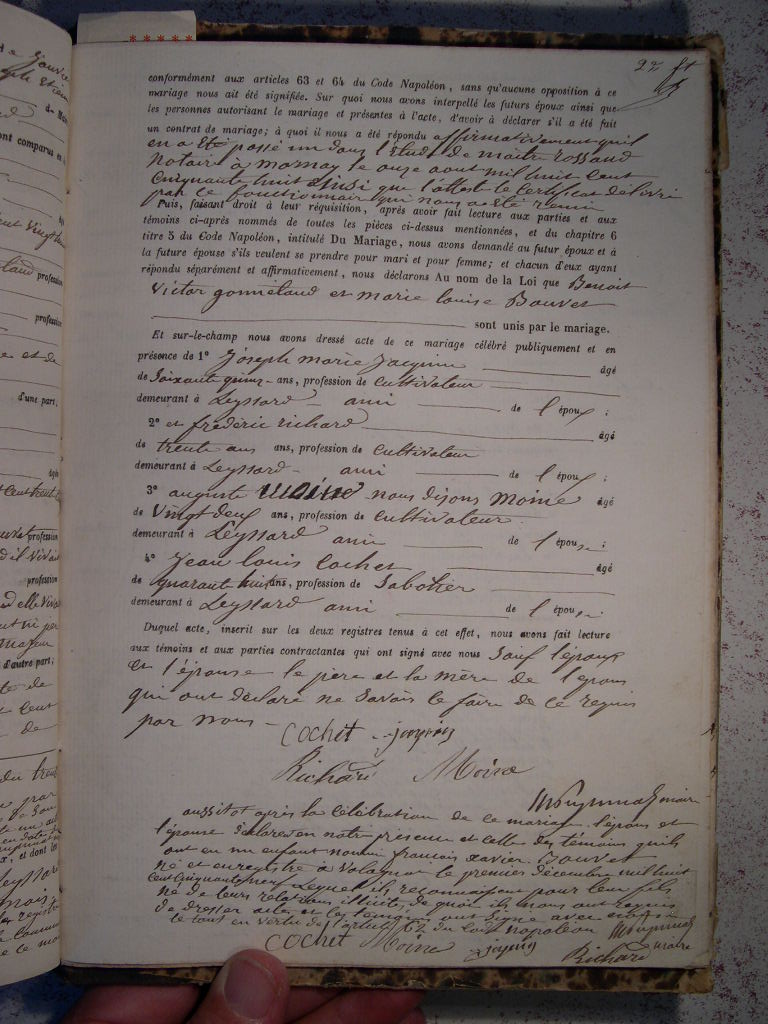 22
conformément aux articles 63 et 64 du Code Napoléon, sans qu'aucune opposition à ce
mariage nous ait été signifiée. Sur quoi nous avons interpellé les futurs époux ainsi que
les personnes autorisant le mariage et présentes à l'acte, d'avoir à déclarer s'il a été fait
un contrat de mariage; à quoi il nous a été répondu affirmativement quil
en a été passé un dans l'étude de maitre rossand
notaire à mornay le onze aout mil huit cent
cinquante huit ainsi que l'atteste le certificat délivré
par le fonctionnair qui nous a été remis
Puis, faisant droit à leur réquisition, après avoir fait lecture aux parties et aux
témoins ci-après nommés de toutes les pièces ci-dessus mentionnées, et du chapitre 6
titre 5 du Code Napoléon, intitulé Du Mariage, nous avons demandé au futur époux et à
la future épouse s'ils veulent se prendre pour mari et pour femme; et chacun d'eux ayant
répondu séparément et affirmativement, nous déclarons Au nom de la Loi que Benoit
Victor gonnéland et marie louise Bouvet
sont unis par le mariage.
Et sur-le-champ nous avons dressé acte de ce mariage célébré publiquement et en
présence de 1° joseph marie jacquin âgé
de Soixante quinz ans, profession de Cultivateur
demeurant à Leyssard ami de l'époux ;
2° et frédéric richard âgé
de trente ans ans, profession de Cultivateur
demeurant à Leyssard ami de l'époux ;
3° auguste moine nous disons moine âgé
de Vingt deux ans, profession de Cultivateur
demeurant à Leyssard ami de l'épouse ;
4° Jean louis Cochet âgé
de quarante huit ans, profession de Sabotier
demeurant à Leyssard ami de l'épouse ;
Duquel acte, inscrit sur les deux registres tenus à cet effet, nous avons fait lecture
aux témoins et aux parties contractantes qui ont signé avec nous Sauf l'époux
et l'épouse le père et la mère de l'épouse
qui ont déclaré ne savoir le faire de ce requis
par nous
Cochet jaquin
Richard Moine
maire
aussitot après la Célébration de ce mariage l'époux et
l'épouse déclarés en notre présence et celle des témoins quils
ont eu un enfant nommé francois xavier Bouvet
né et enregistré à Volognat le premier décembre mil huit
Cent Cinquante Lequel ils reconnaissent pour leur fils
né de leurs relations illicite, de quoi ils nous ont requis
de dresser acte et les temoins ont signé avec
le tout en vertu de l'article du Code napoléon
maire
Cochet Moine jaquin Richard